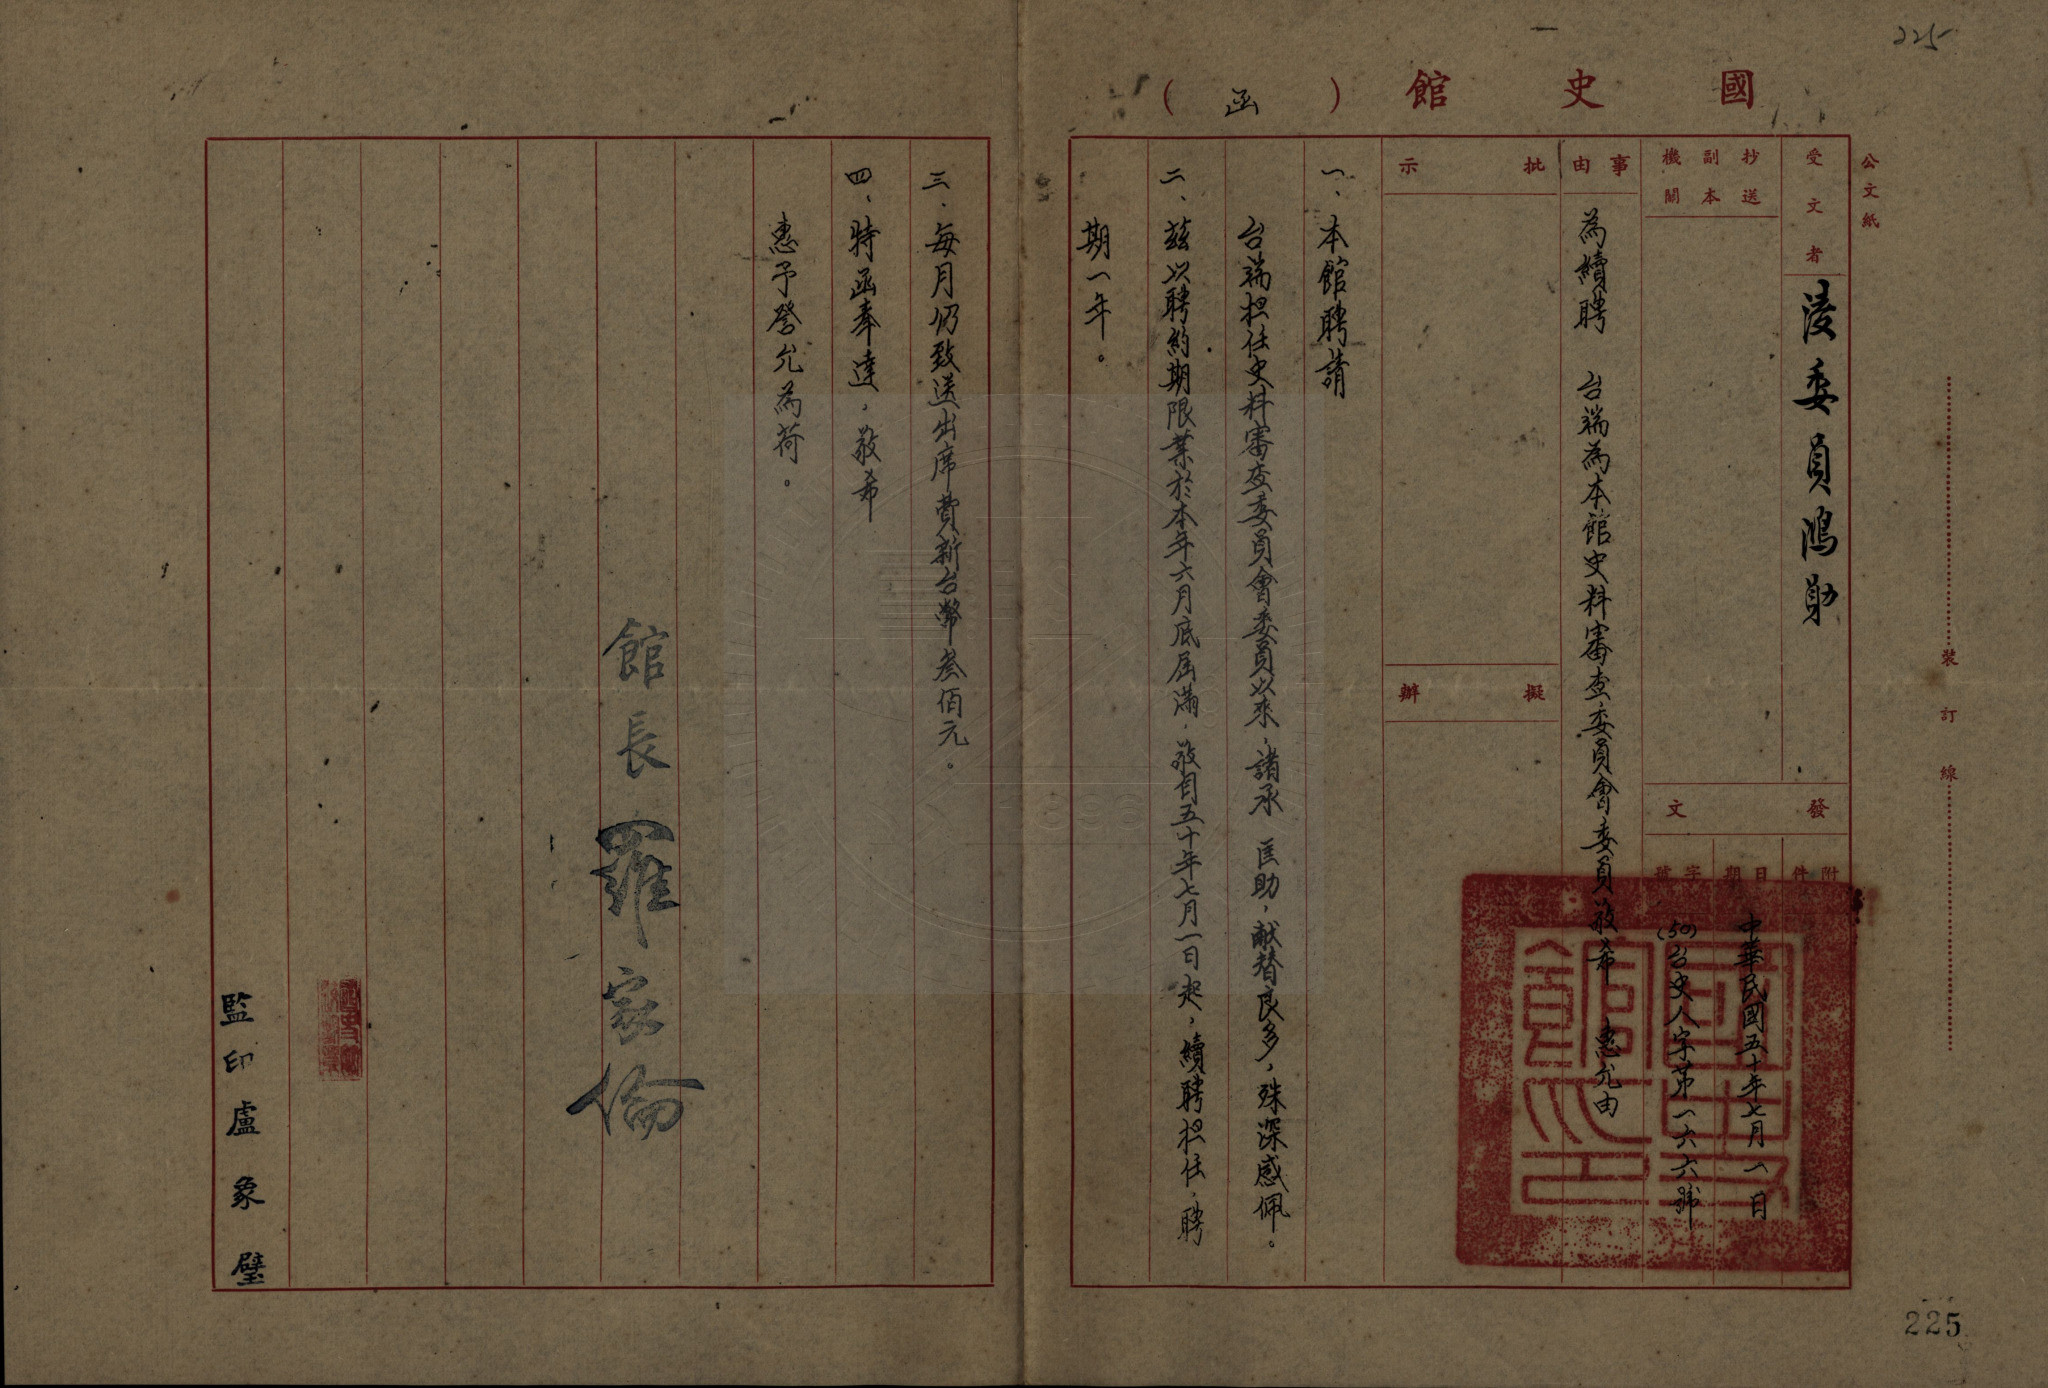 225
國史館（函）
公文紙
受文者
凌委員鴻勛
抄送副本機關
發文
附件
日期
中華民國五十年七月一日
字號
(50)台史人字第一六六號
事由
為續聘　台端為本館史料審查委員會委員敬希　惠允由
批示
擬辦
一、本館聘請
台端担任史料審查委員會委員以來，諸承　匡助，献替良多，殊深感佩。
二、茲以聘約期限業於本年六月底屆滿，敬自五十年七月一日起，續聘担任，聘
期一年。
三、每月仍致送出席費新台幣叁佰元。
四、特函奉達，敬希
惠予詧允為荷。
館長羅家倫
監印盧象璧
裝訂線
國史館之印
1896
225